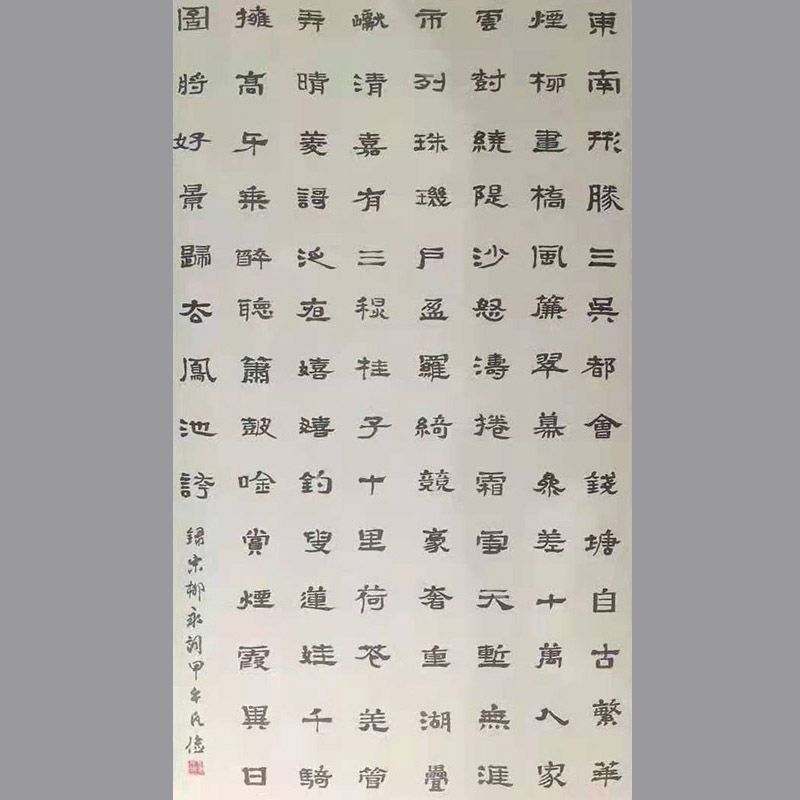 東南形勝三吳都會錢塘自古繁華
煙柳畫橋風簾翠幕參差十萬人家
雲樹繞隄沙怒濤捲霜雪天塹無涯
市列珠璣戶盈羅綺競豪奢重湖疊
巘清嘉有三穐桂子十里荷花羌管
弄晴菱謌泛夜嬉嬉釣叟蓮娃千騎
擁高牙乘醉聽簫鼓唫賞煙霞異日
圖將好景歸去鳳池誇
錄宋柳永詞甲午